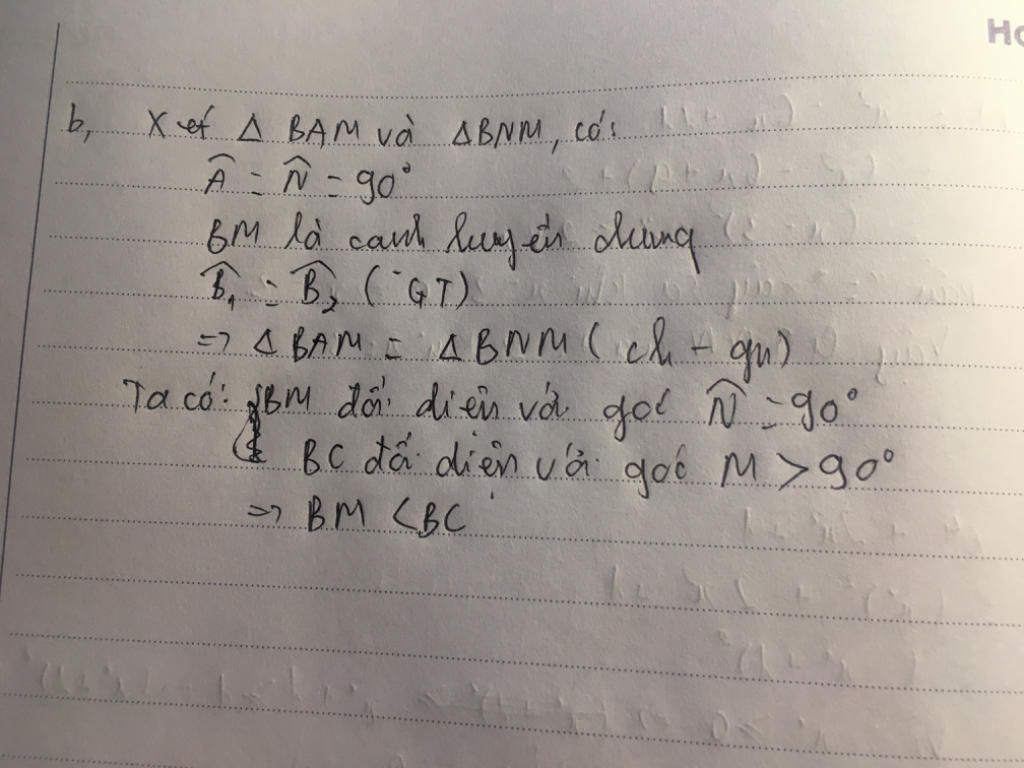 Ho
b, Xét Δ BAM và ΔBNM, có:
Â = N̂ = 90°
BM là cạnh huyền chung
B̂₁ = B̂₂ (GT)
=> Δ BAM = Δ BNM ( ch - gn)
Ta có: BM đối diện với góc N̂ = 90°
BC đối diện với góc M > 90°
=> BM < BC